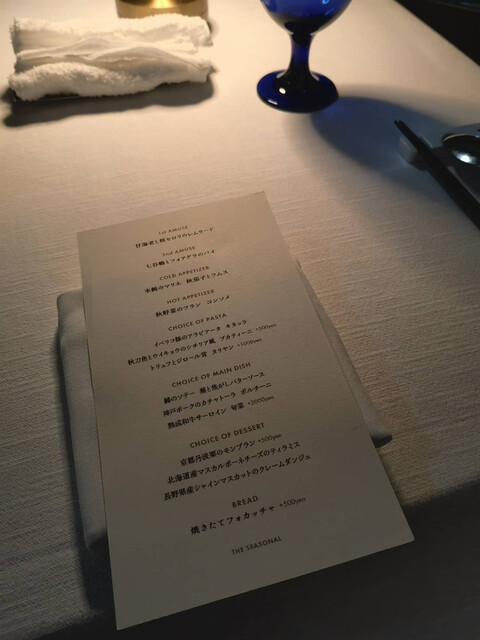 1st AMUSE
甘海老と根セロリのレムラード
2nd AMUSE
七谷鴨とフォアグラのパイ
COLD APPETIZER
本鮪のマリネ 秋茄子とフムス
HOT APPETIZER
秋野菜のフラン コンソメ
CHOICE OF PASTA
イベリコ豚のアラビアータ キタッラ
秋刀魚とウイキョウのシチリア風 ブカティーニ +500yen
トリュフとジロール茸 タリヤン +1000yen
CHOICE OF MAIN DISH
鱸のソテー 焦がしバターソース
神戸ポークのカチャトーラ ポルチーニ
熟成和牛サーロイン 旬菜 +2000yen
CHOICE OF DESSERT
京都丹波栗のモンブラン +500yen
北海道産マスカルポーネチーズのティラミス
長野県産シャインマスカットのクレームダンジュ
BREAD
焼きたてフォカッチャ +500yen
THE SEASONAL